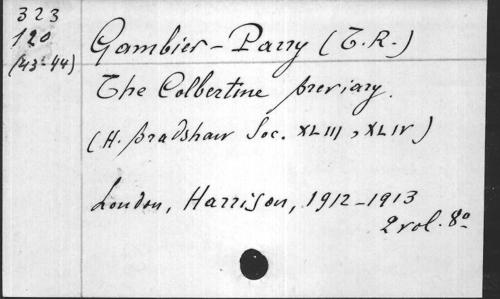 323
120
(43-44)
Gambier-Parry (T.R.)
The Colbertine breviary.
(H. bradshaw Soc. XLIII, XLIV)
London, Harrison, 1912-1913
2 vol. 8º